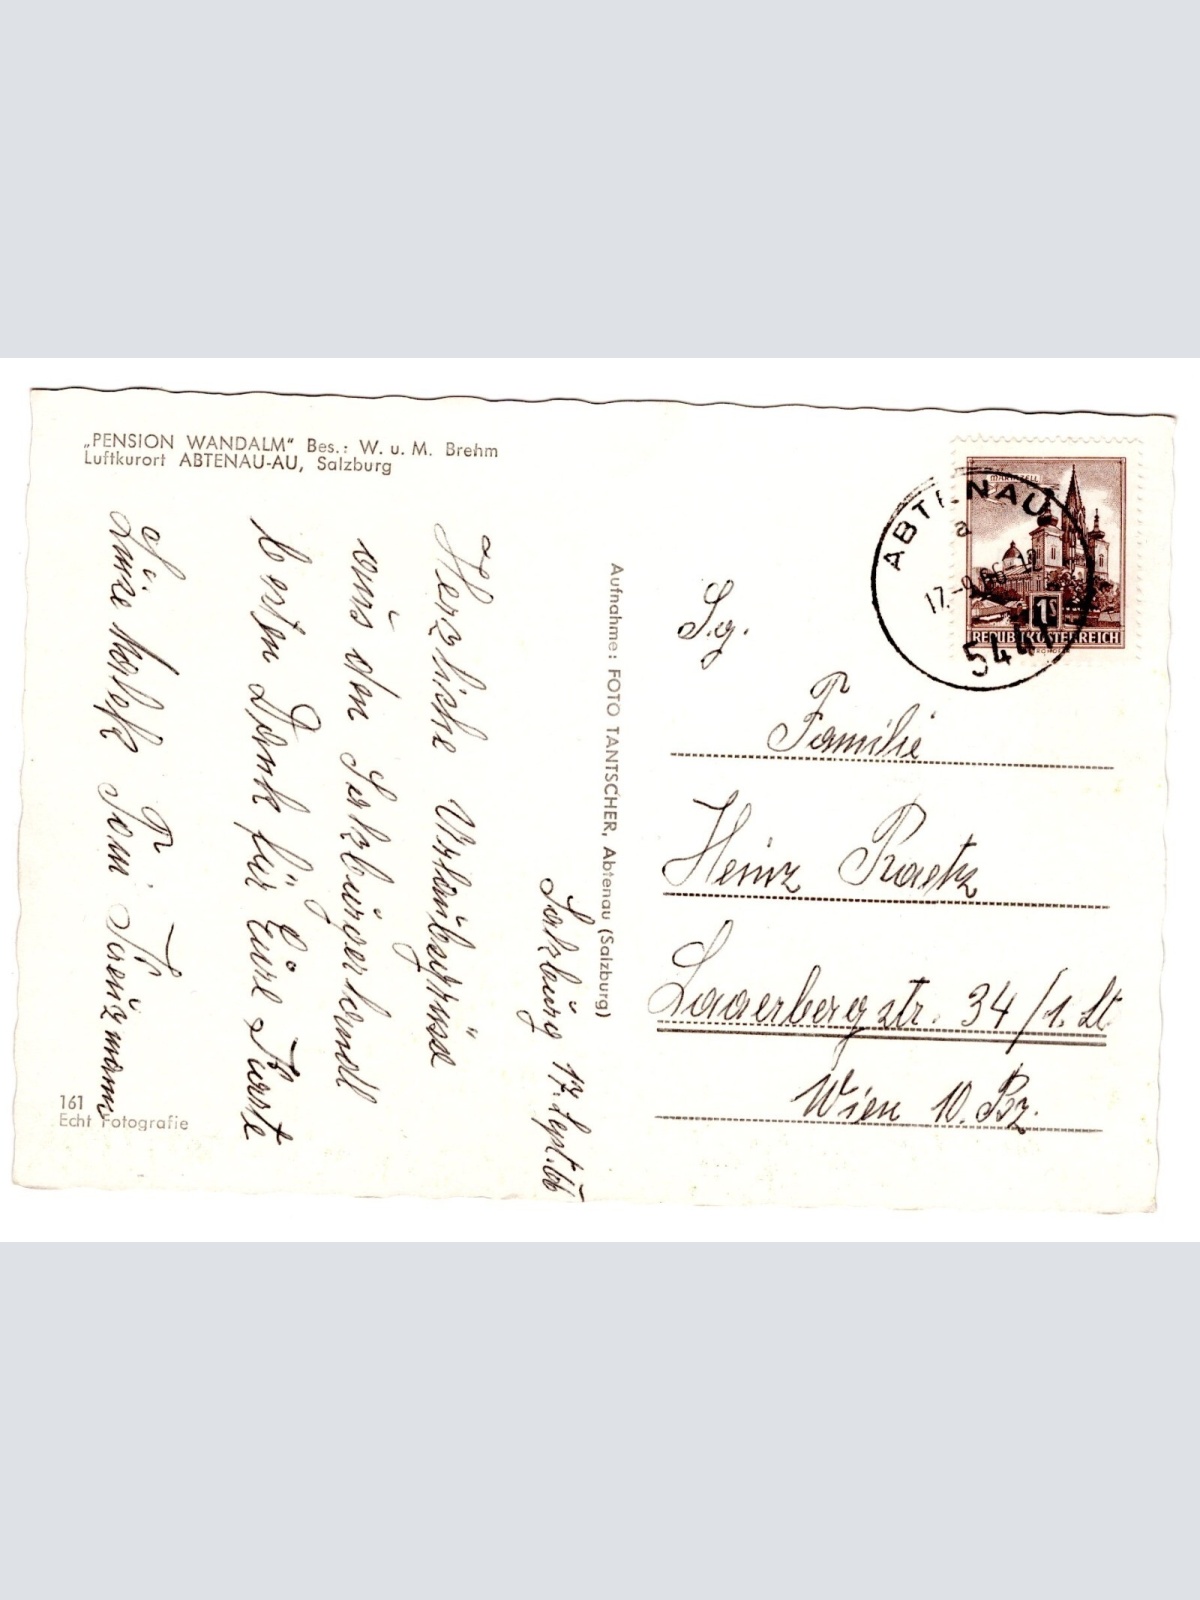 „PENSION WANDALM“ Bes.: W. u. M. Brehm
Luftkurort ABTENAU-AU, Salzburg
Salzburg 17. Sept. 66
Herzliche Urlaubsgrüsse
aus den Salzburgerlandl
besten Dank für Eure Karte
Toni Kreuzmann
161
Echt Fotografie
Aufnahme: FOTO TANTSCHER, Abtenau (Salzburg)
ABTENAU
a
17.-9.66-12
5441
MARIAZELL
1S
REPUBLIK ÖSTERREICH
Sg.
Familie
Heinz Raetz
Laaerbergstr. 34/1. St
Wien 10. Bz.